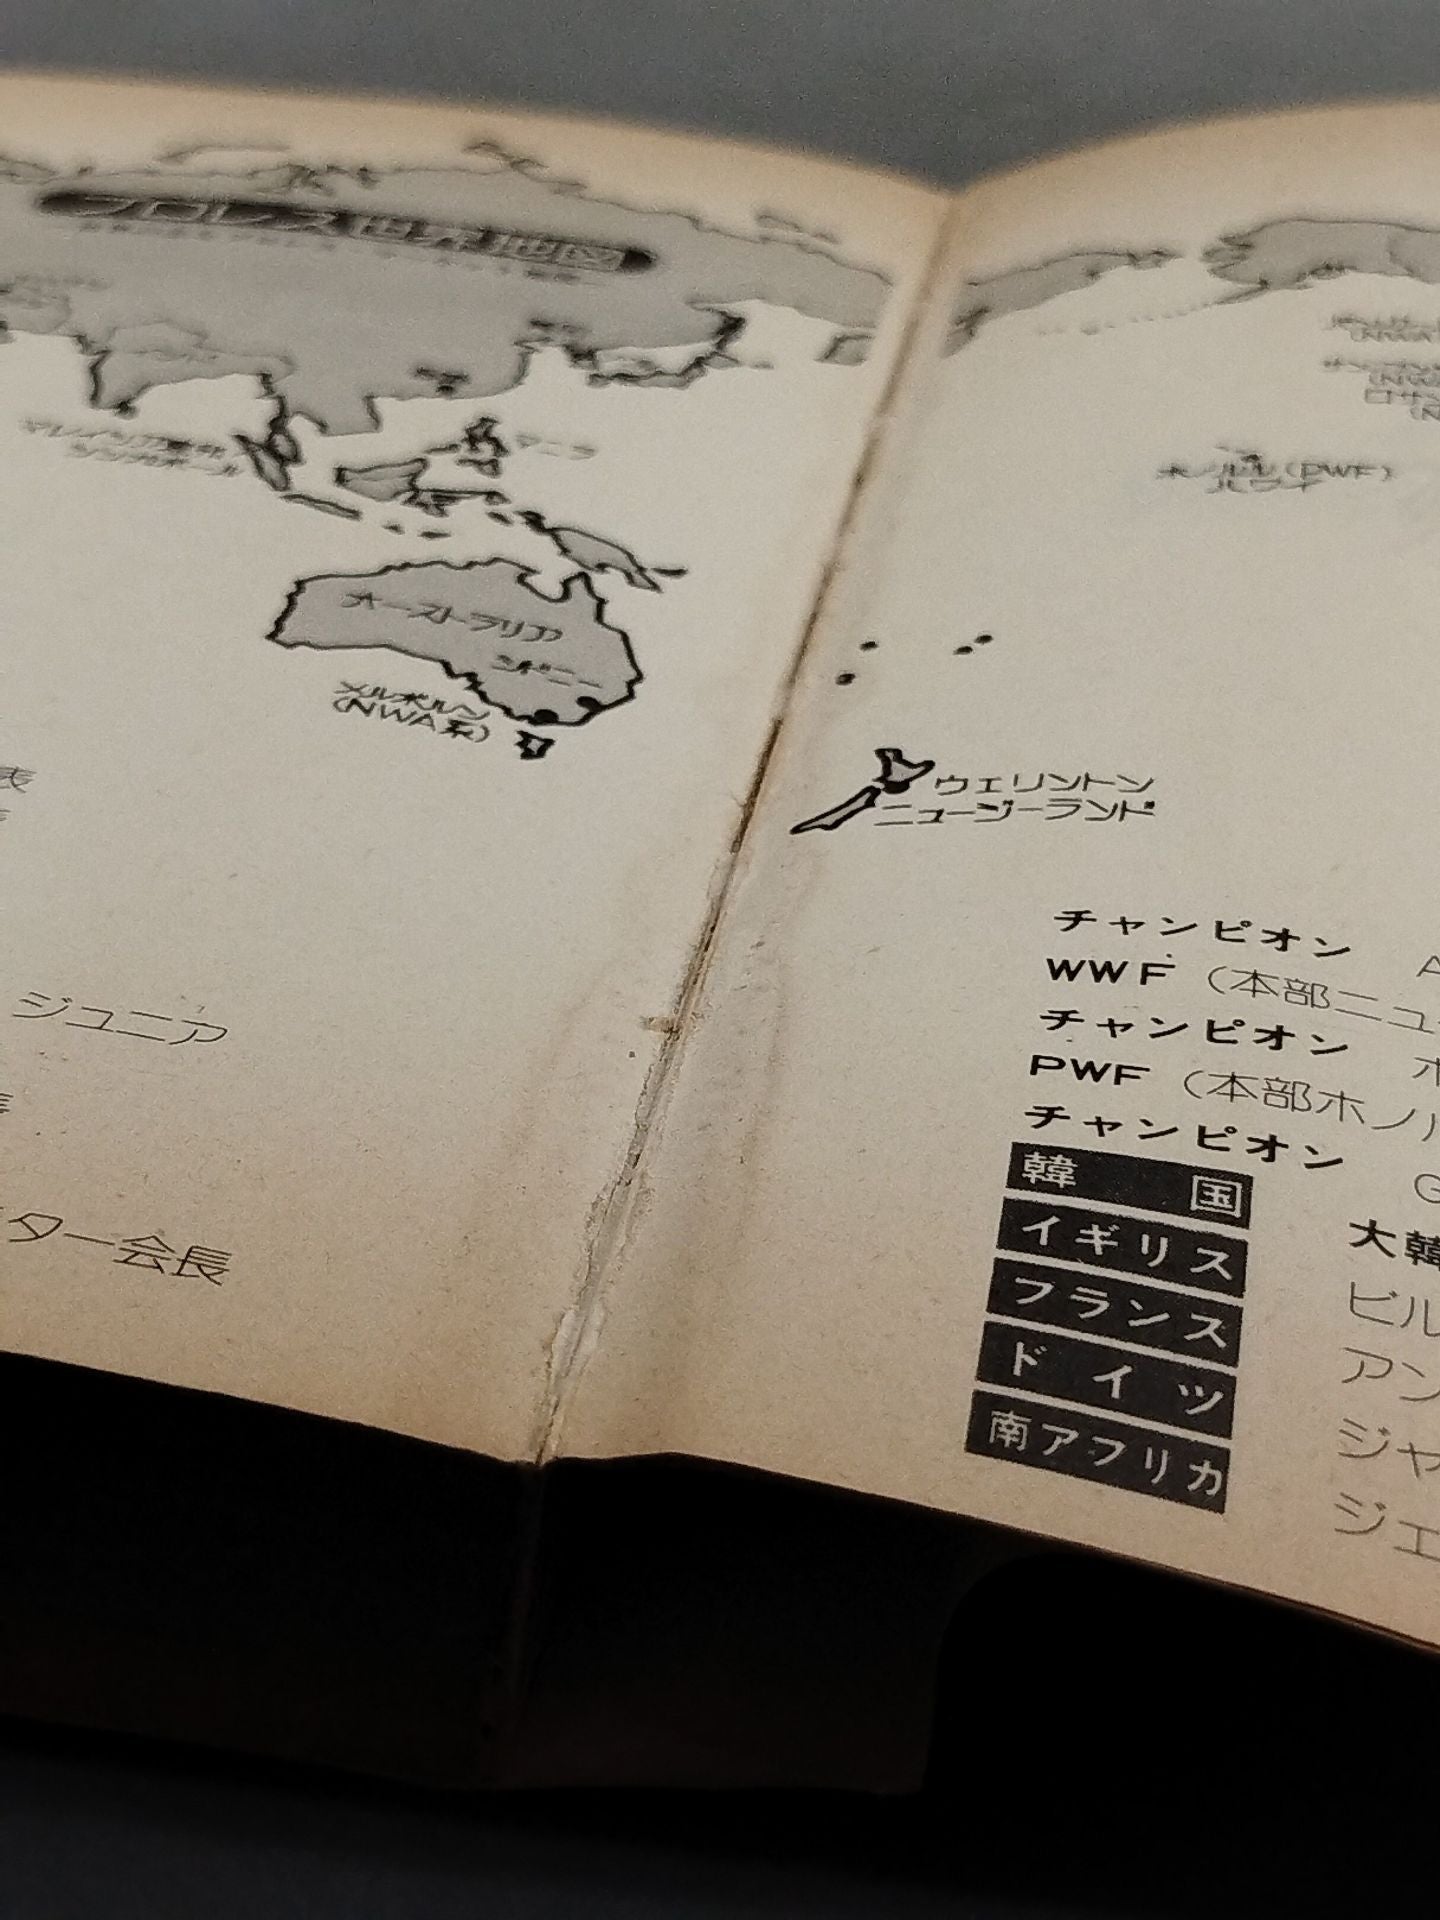 プロレス世界地図
マニラ
シンガポール
オーストラリア
シドニー
メルボルン
(NWA系)
表
ジュニア
ター会長
ホノルル(PWF)
ウェリントン
ニュージーランド
チャンピオン A
WWF (本部ニュー
チャンピオン
PWF (本部ホノル
チャンピオン G
韓国 大韓
イギリス ビル
フランス アン
ドイツ ジャ
南アフリカ ジェ